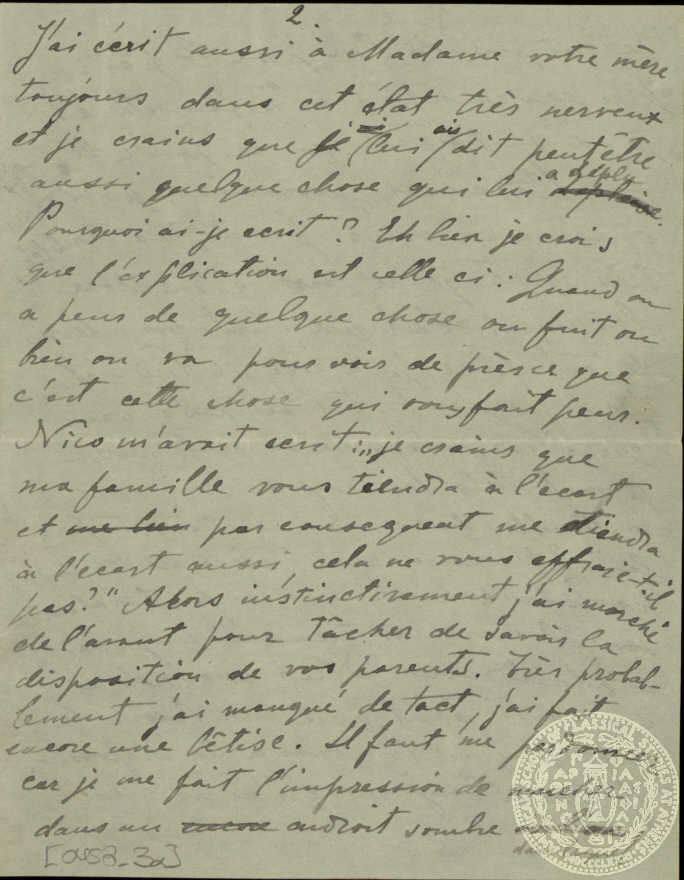 2.
J'ai écrit aussi à Madame votre mère
toujours dans cet état très nerveux
et je crains que je lui ai dit peutêtre
aussi quelque chose qui lui a déplu
Pourquoi ai-je ecrit? Eh bien je crois
que l'explication est celle ci: Quand on
a peur de quelque chose on fuit ou
bien on va pour voir de près ce que
c'est cette chose qui vous fait peur.
Nico m'avait ecrit: „je crains que
ma famille vous tiendra à l'ecart
et me bien par consequent me tiendra
à l'ecart aussi, cela ne vous effraie-t-il
pas?" Alors instinctivement j'ai marché
de l'avant pour tâcher de savoir la
disposition de vos parents. Très probab-
lement j'ai manqué de tact, j'ai fait
encore une bêtise. Il faut me pardonner
car je me fait l'impression de marcher
dans un encore androit sombre
[0452-3a]